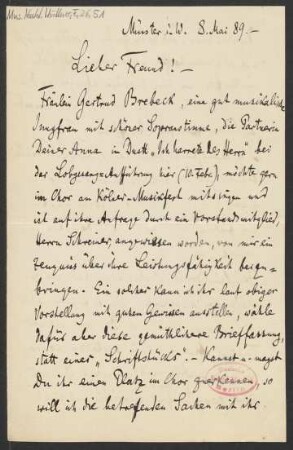 Münster i. W. 8. Mai 89.–
Lieber Freund! –
Fräulein Gertrud Brebeck, eine gut musikalische
Jungfrau mit schöner Sopranstimme, die Partnerin
Deiner Anna im Duett „Ich harrete des Herrn" bei
der Lobgesang-Aufführung hier (10. Febr.), möchte gern
im Chor am Kölner-Musikfest mitsingen und
ist auf ihre Anfrage durch ein Vorstandsmitglied,
Herrn Schreiner, angewiesen worden, von mir ein
Zeugniss über ihre Leistungsfähigkeit beizu-
bringen. – Ein solches kann ich ihr laut obiger
Vorstellung mit gutem Gewissen ausstellen, wähle
dafür aber diese gemüthlichere Brieffassung,
statt eines „Schriftstücks". – Kannst u. magst
Du ihr einen Platz im Chor zuerkennen, so
will ich die betreffenden Sachen mit ihr